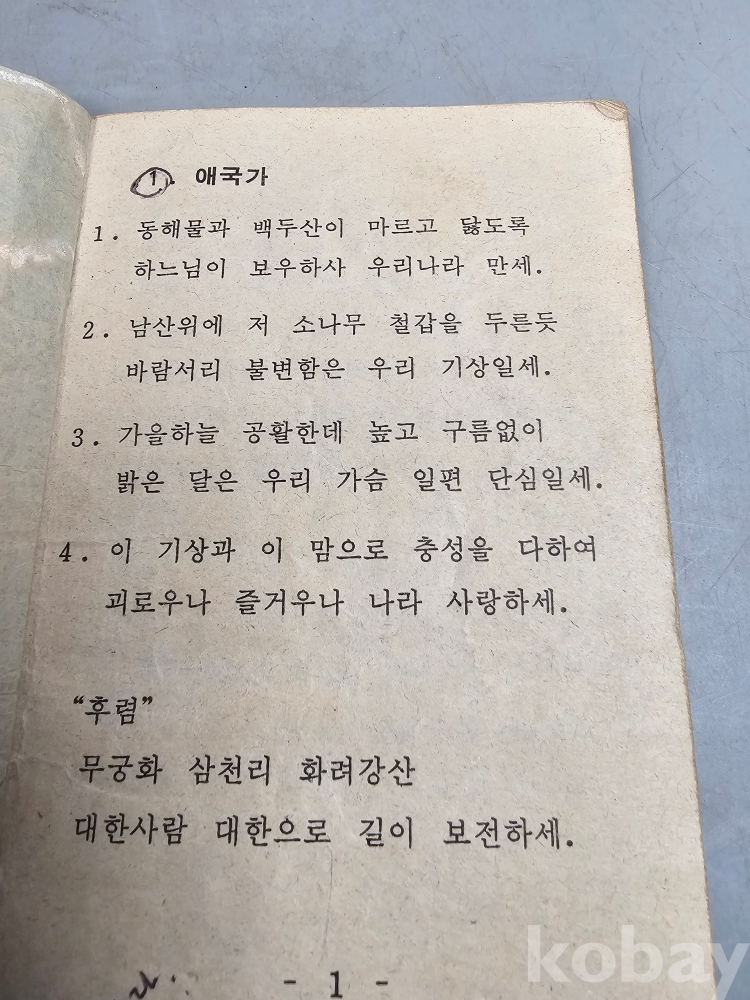 1. 애국가
1. 동해물과 백두산이 마르고 닳도록
하느님이 보우하사 우리나라 만세.
2. 남산위에 저 소나무 철갑을 두른듯
바람서리 불변함은 우리 기상일세.
3. 가을하늘 공활한데 높고 구름없이
밝은 달은 우리 가슴 일편 단심일세.
4. 이 기상과 이 맘으로 충성을 다하여
괴로우나 즐거우나 나라 사랑하세.
“후렴”
무궁화 삼천리 화려강산
대한사람 대한으로 길이 보전하세.
- 1 -
kobay